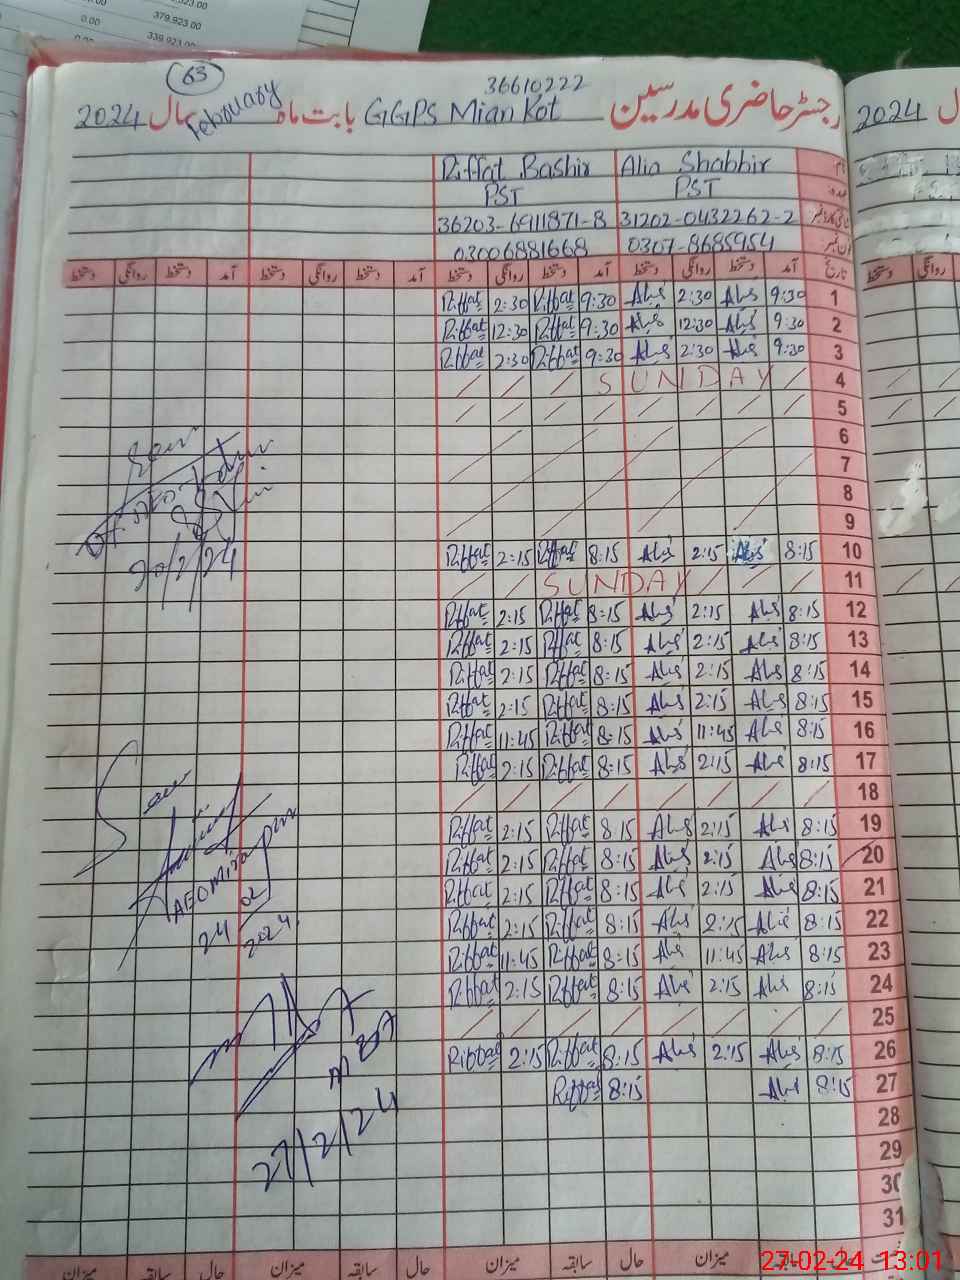 379,923.00
0.00
339,923.00
0.00
63
36610222
رجسٹر حاضری مدرسین GGPS Mian Kot بابت ماہ February سال 2024
2024
Riffat Bashir Alia Shabbir نام
PST PST عہدہ
36203-6911871-8 31202-0432262-2
03006881668 0307-8685954
دستخط روانگی دستخط آمد دستخط روانگی دستخط آمد دستخط روانگی دستخط آمد دستخط روانگی دستخط آمد تاریخ
Riffat 2:30 Riffat 9:30 Abs 2:30 Abs 9:30 1
Riffat 12:30 Riffat 9:30 Abs 12:30 Abs 9:30 2
Riffat 2:30 Riffat 9:30 Abs 2:30 Abs 9:30 3
SUNDAY 4
5
6
7
8
9
Riffat 2:15 Riffat 8:15 Abs 2:15 Abs 8:15 10
SUNDAY 11
Riffat 2:15 Riffat 8:15 Abs 2:15 Abs 8:15 12
Riffat 2:15 Riffat 8:15 Abs 2:15 Abs 8:15 13
Riffat 2:15 Riffat 8:15 Abs 2:15 Abs 8:15 14
Riffat 2:15 Riffat 8:15 Abs 2:15 Abs 8:15 15
Riffat 11:45 Riffat 8:15 Abs 11:45 Abs 8:15 16
Riffat 2:15 Riffat 8:15 Abs 2:15 Abs 8:15 17
18
Riffat 2:15 Riffat 8:15 Abs 2:15 Abs 8:15 19
Riffat 2:15 Riffat 8:15 Abs 2:15 Abs 8:15 20
Riffat 2:15 Riffat 8:15 Abs 2:15 Abs 8:15 21
Riffat 2:15 Riffat 8:15 Abs 2:15 Abs 8:15 22
Riffat 11:45 Riffat 8:15 Abs 11:45 Abs 8:15 23
Riffat 2:15 Riffat 8:15 Abs 2:15 Abs 8:15 24
25
Riffat 2:15 Riffat 8:15 Abs 2:15 Abs 8:15 26
Riffat 8:15 Abs 8:15 27
28
29
30
31
20/2/24
Seen
AEO
24
02
2024
MEA
27/2/24
میزان سابقہ حال میزان سابقہ حال میزان سابقہ حال میزان
27-02-24 13:01